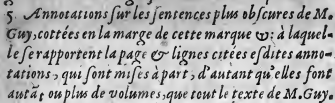 5. Annotations ſur les ſentences plus obſcures de M.
Guy, cottées en la marge de cette marque ๗: à laquel-
le ſe rapportent la page & lignes citées eſdites anno-
tations, qui ſont miſes à part, d'autant qu'elles font
autāt ou plus de volumes, que tout le texte de M. Guy.